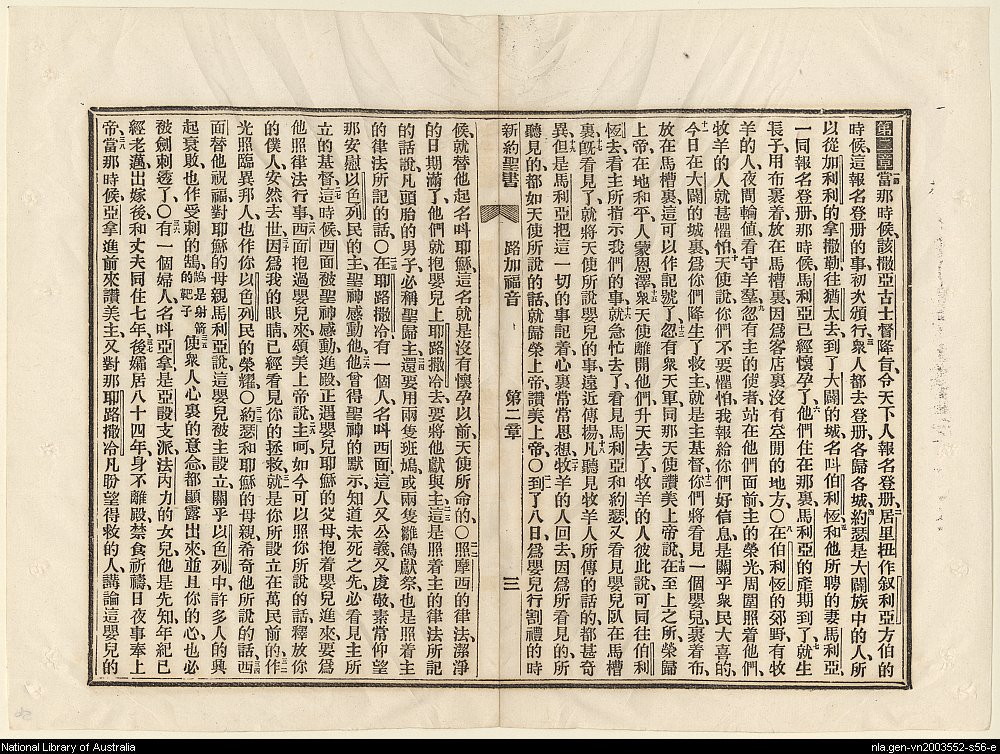 第二章當那時候、該撒亞古士督降旨、令天下人報名登册、居里扭作叙利亞方伯的
時候、這報名登册的事、初次頒行、衆人都去登册、各歸各城、約瑟是大闢族中的人、所
以從加利利的拿撒勒往猶太去、到了大闢的城、名叫伯利恆、和他所聘的妻馬利亞
一同報名登册、那時候、馬利亞已經懷孕了、他們住在那裏、馬利亞的產期到了、就生
長子、用布裹着、放在馬槽裏、因爲客店裏沒有空閒的地方、〇在伯利恆的郊野、有牧
羊的人、夜間輪値看守羊羣、忽有主的使者站在他們面前、主的榮光周圍照着他們、
牧羊的人就甚懼怕、天使說、你們不要懼怕、我報給你們好信息、是關乎衆民大喜的、
今日在大闢的城裏、爲你們降生了救主、就是主基督、你們將看見一個嬰兒、裹着布、
放在馬槽裏、這可以作記號了、忽有衆天軍、同那天使讚美上帝說、在至上之所、榮歸
上帝、在地和平、人蒙恩澤、衆天使離開他們升天去了、牧羊的人彼此說、可同往伯利
恆、去看主所指示我們的事、就急忙去了、看見馬利亞和約瑟、又看見嬰兒臥在馬槽
裏、既看見了、就將天使所說嬰兒的事、遠近傳揚、凡聽見牧羊人所傳的話的、都甚奇
異、但是馬利亞把這一切的事、記着心裏、常常思想、牧羊的人回去、因爲所看見的、所
聽見的、都如天使所說的話、就歸榮上帝、讚美上帝、〇到了八日、爲嬰兒行割禮的時
新約聖書 路加福音 第二章 三
候、就替他起名叫耶穌、這名就是沒有懷孕以前、天使所命的、〇照摩西的律法、潔淨
的日期滿了、他們就抱嬰兒上耶路撒冷去、要將他獻與主、這是照着主的律法所記
的話說、凡頭胎的男子、必稱聖歸主、還要用兩隻班鳩、或兩隻雛鴿獻祭、也是照着主
的律法所記的話、〇在耶路撒冷有一個人、名叫西面、這人又公義、又虔敬、素常仰望
那安慰以色列民的主、聖神感動他、他曾得聖神的默示、知道未死之先、必看見主所
立的基督、這時候西面被聖神感動、進殿、正遇嬰兒耶穌的父母、抱着嬰兒進來、要爲
他照律法行事、西面抱過嬰兒來、頌美上帝說、主呵、如今可以照你所說的話、釋放你
的僕人安然去世、因爲我的眼睛、已經看見你的拯救、就是你所設立在萬民前的、作
光照臨異邦人、也作你以色列民的榮耀、〇約瑟和耶穌的母親、希奇他所說的話、西
面替他祝福、對耶穌的母親馬利亞說、這嬰兒被主設立、關乎以色列中、許多人的興
起衰敗、也作受刺的鵠、鵠是射箭的靶子使衆人心裏的意念都顯露出來、並且你的心、也必
被劍刺透了、〇有一個婦人、名叫亞拿、是亞設支派、法內力的女兒、他是先知、年紀已
經老邁、出嫁後、和丈夫同住七年、後孀居八十四年、身不離殿、禁食祈禱、日夜事奉上
帝、當那時候、亞拿進前來讚美主、又對那耶路撒冷凡盼望得救的人、講論這嬰兒的
National Library of Australia
nla.gen-vn2003552-s56-e